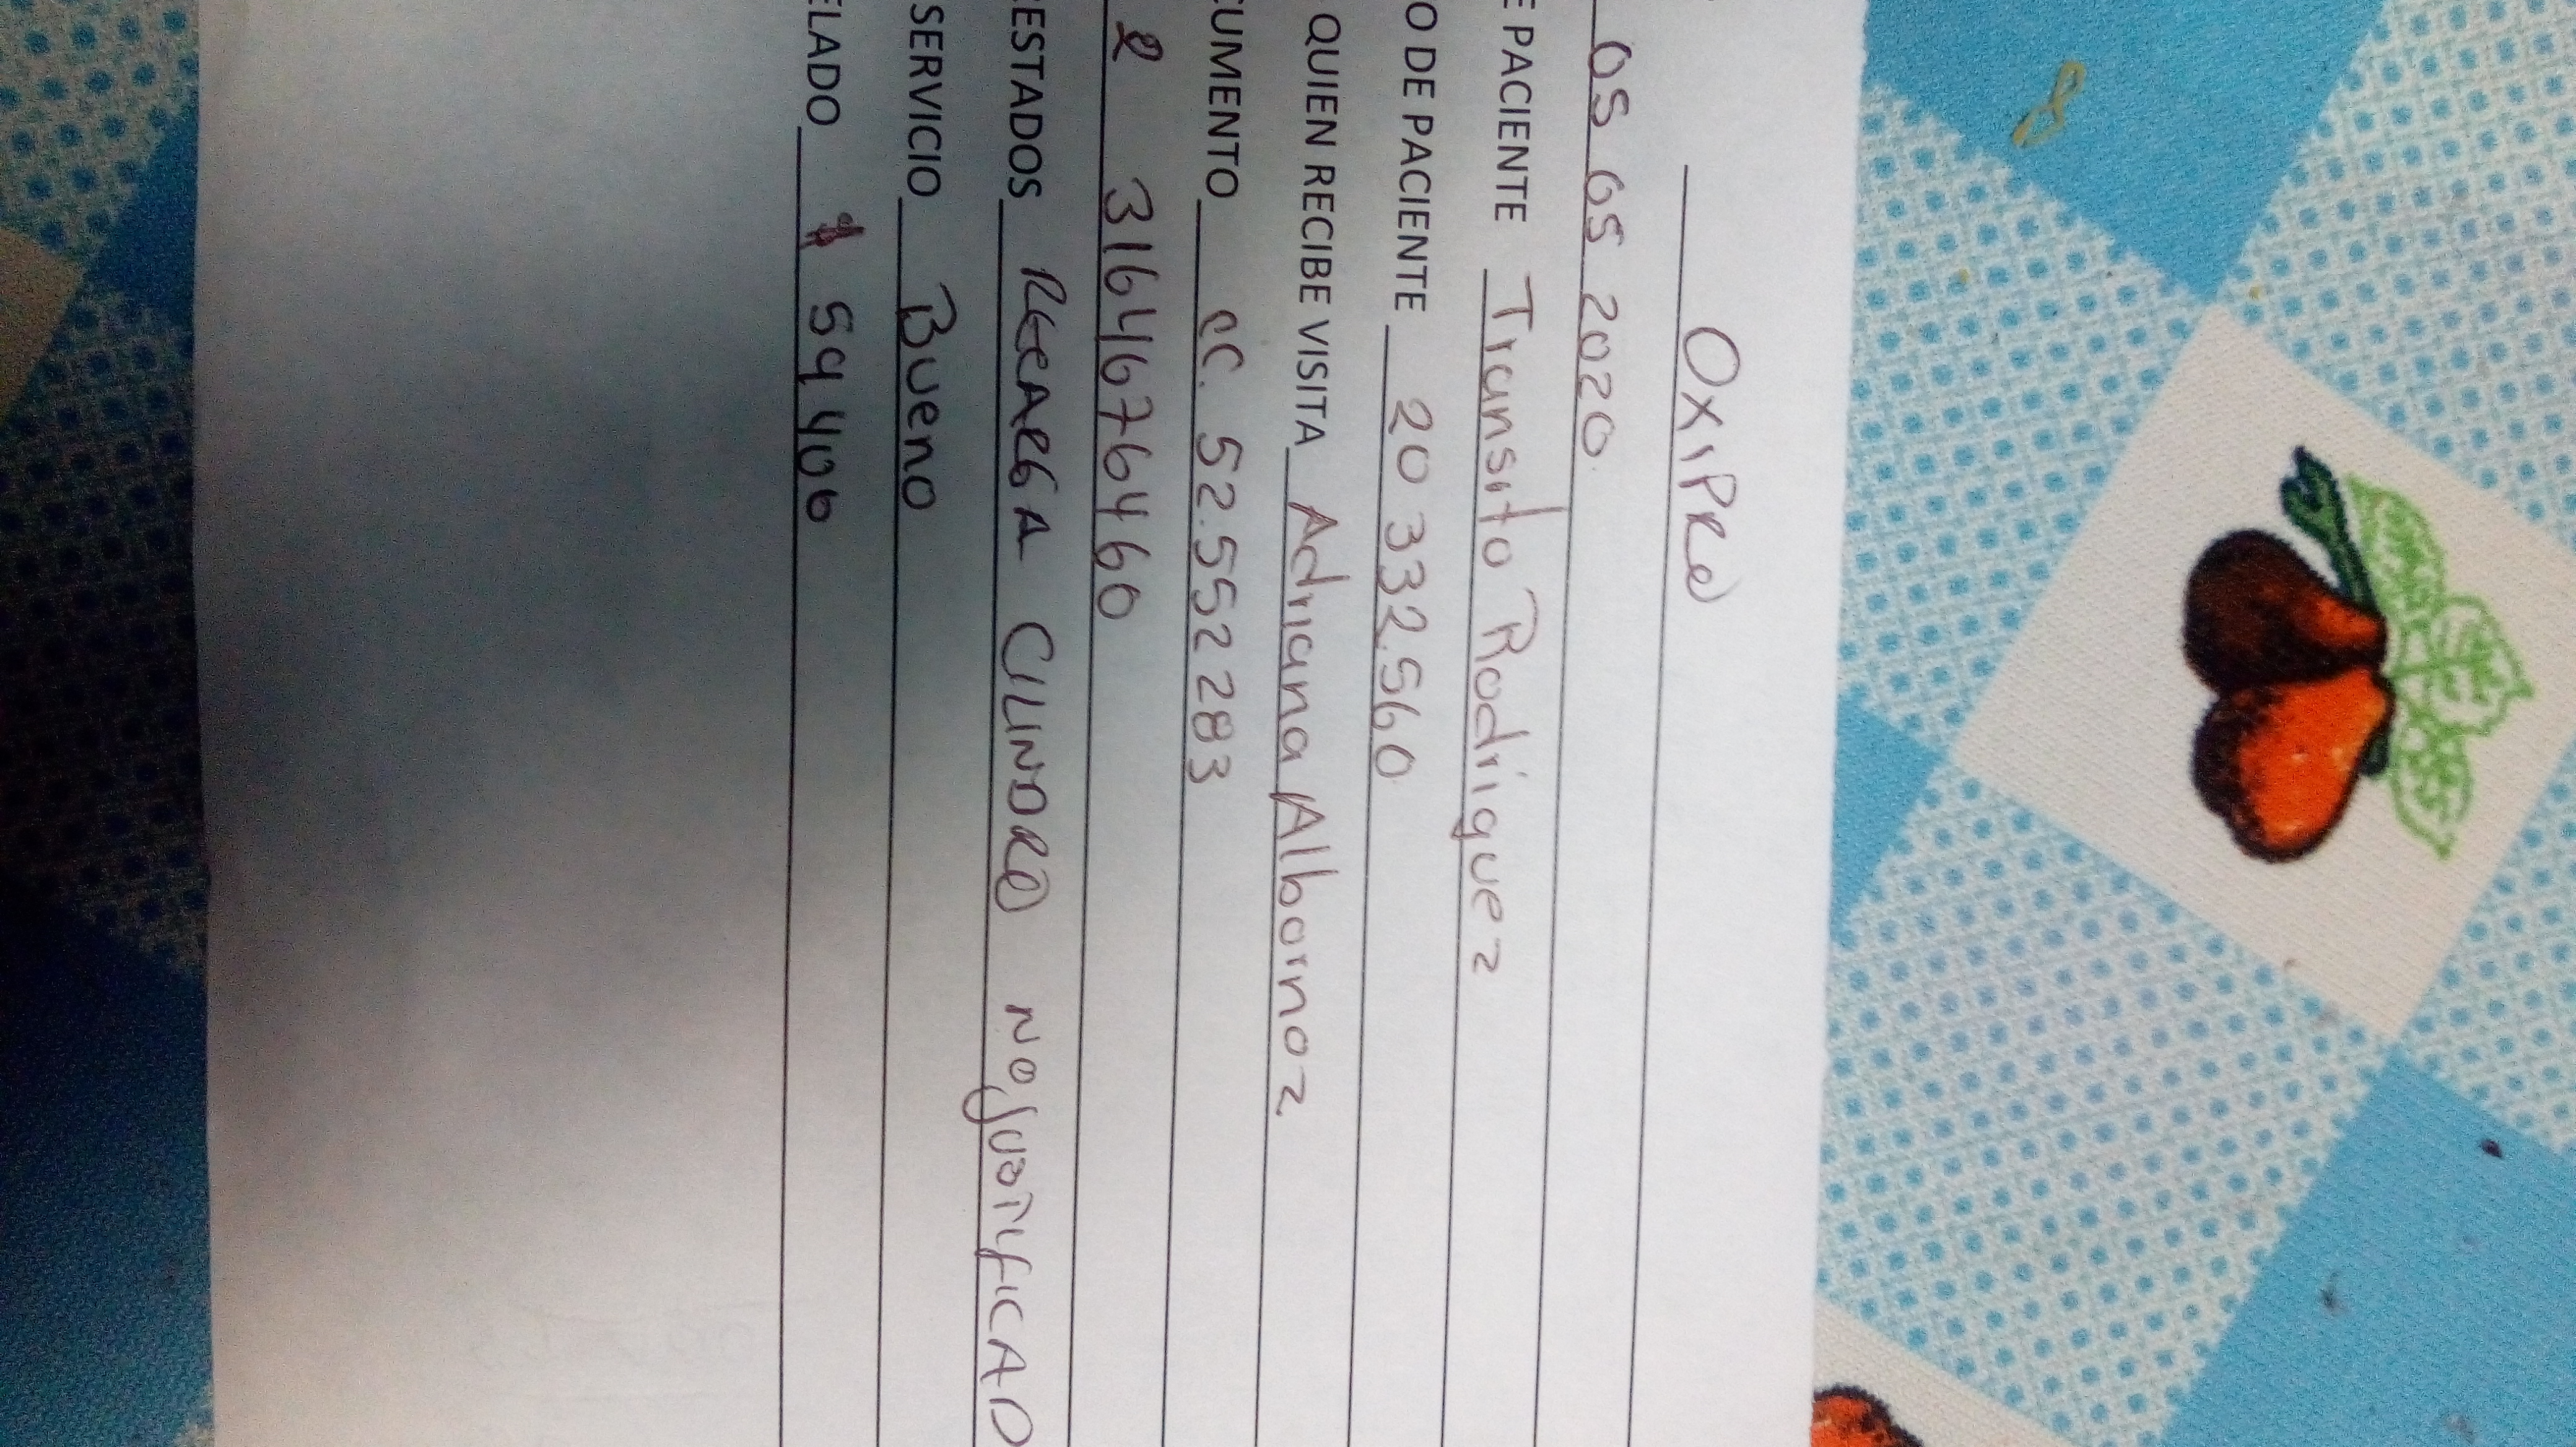 OxiPRO
05 05 2020
E PACIENTE Transito Rodriguez
O DE PACIENTE 20 332.560
QUIEN RECIBE VISITA Adriana Albornoz
CUMENTO CC. 52.552 283
2 31646764660
RESTADOS RECARGA CILINDRO NO JUSTIFICAD
SERVICIO Bueno
ELADO $ 59 400